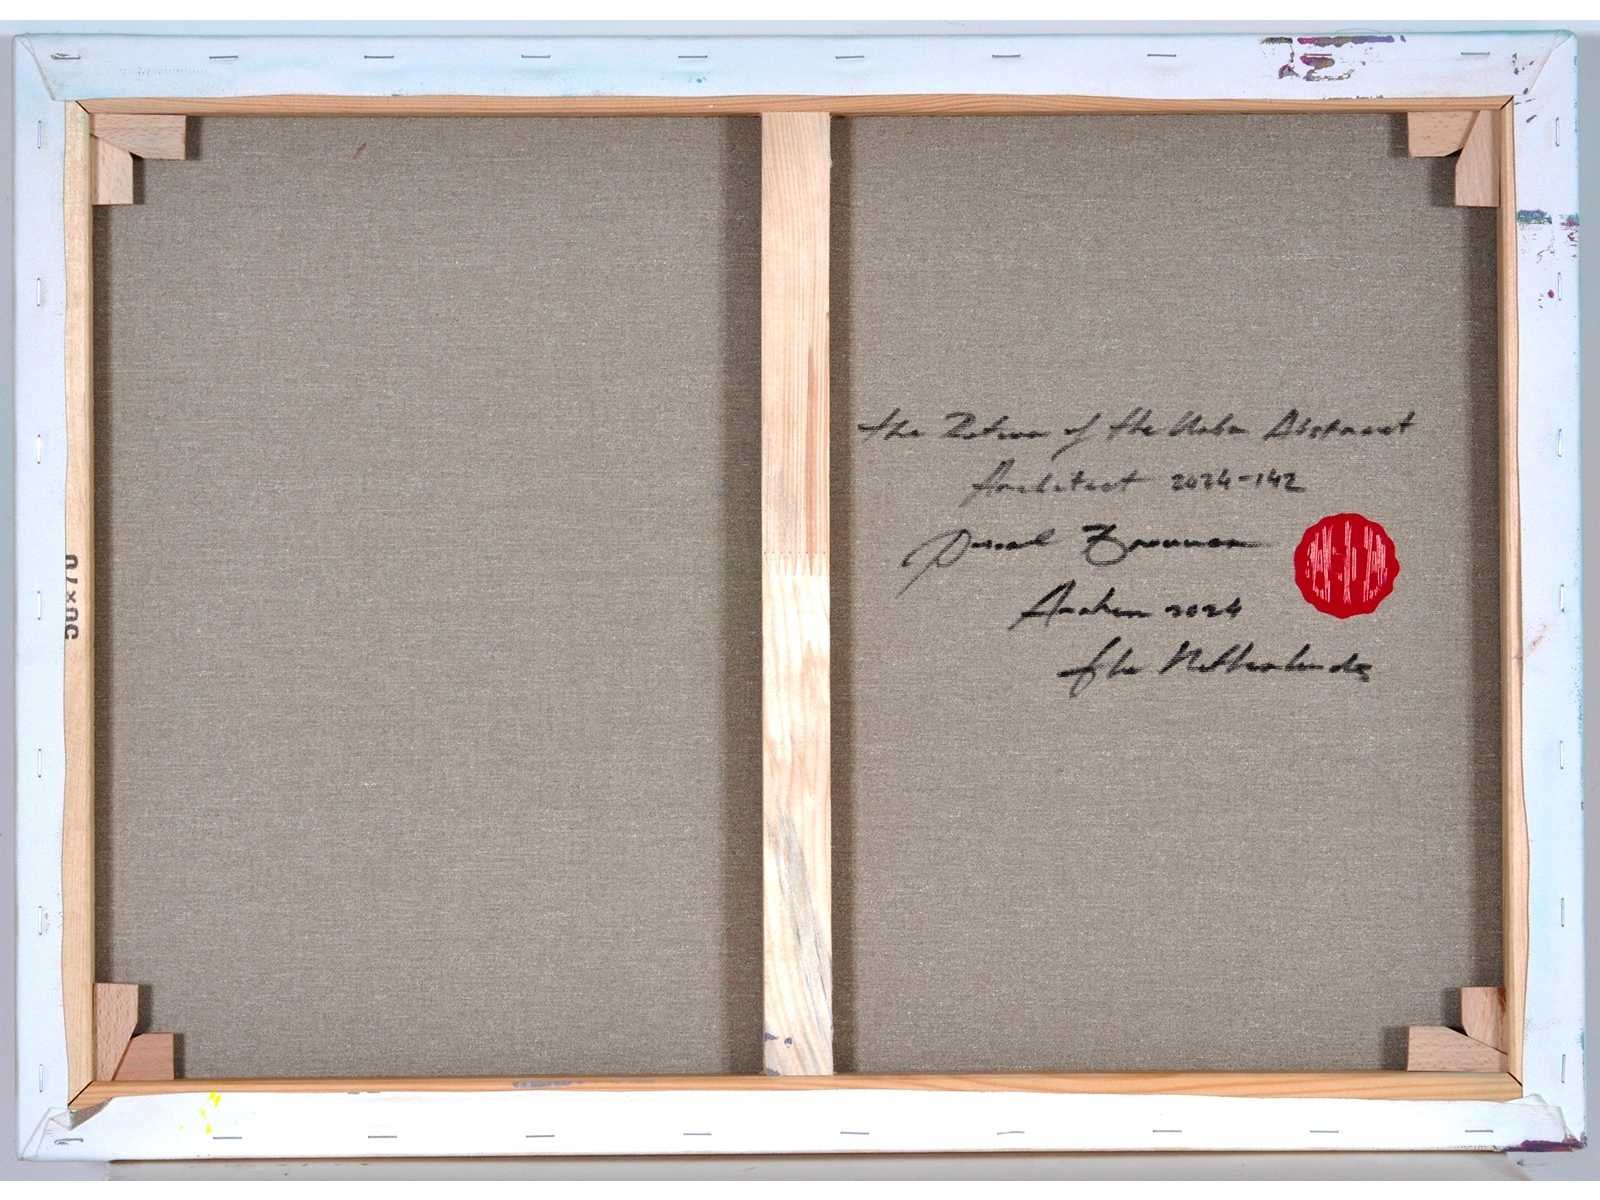 The Return of the Urban Abstract
Architect 2024-142
Pascal Brouwer
Arnhem 2024
The Netherlands
50x70